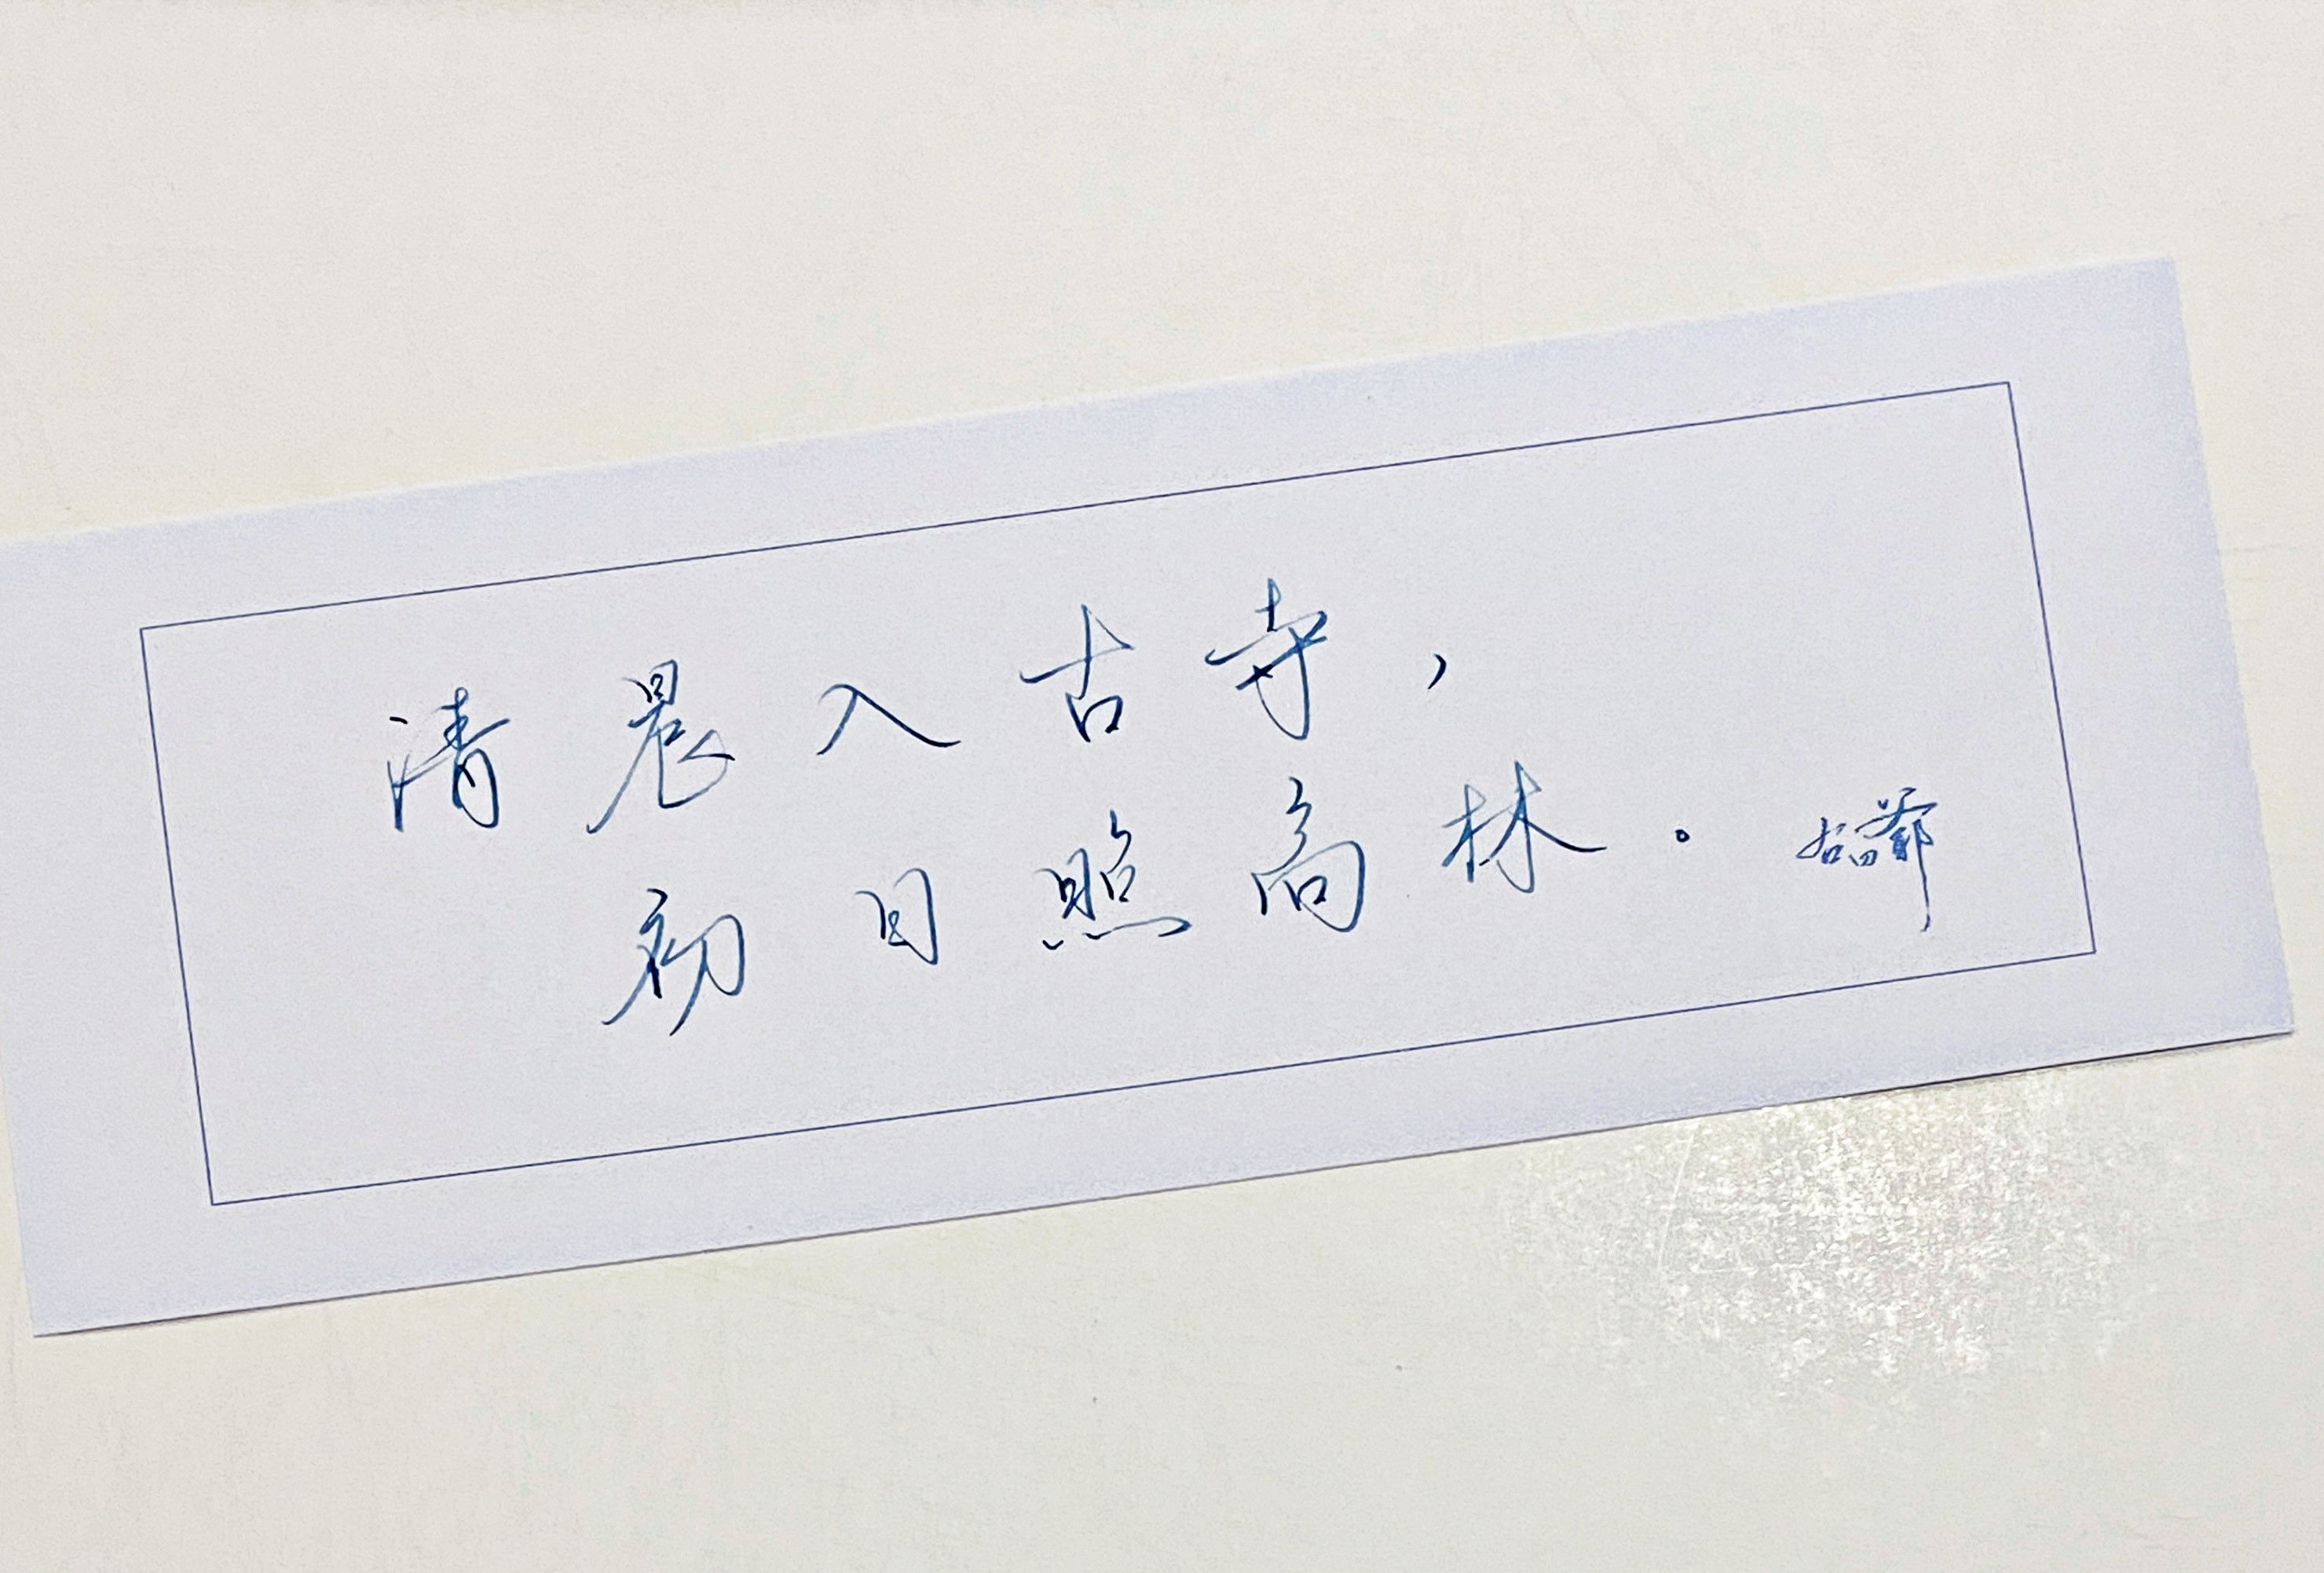 清晨入古寺，
初日照高林。